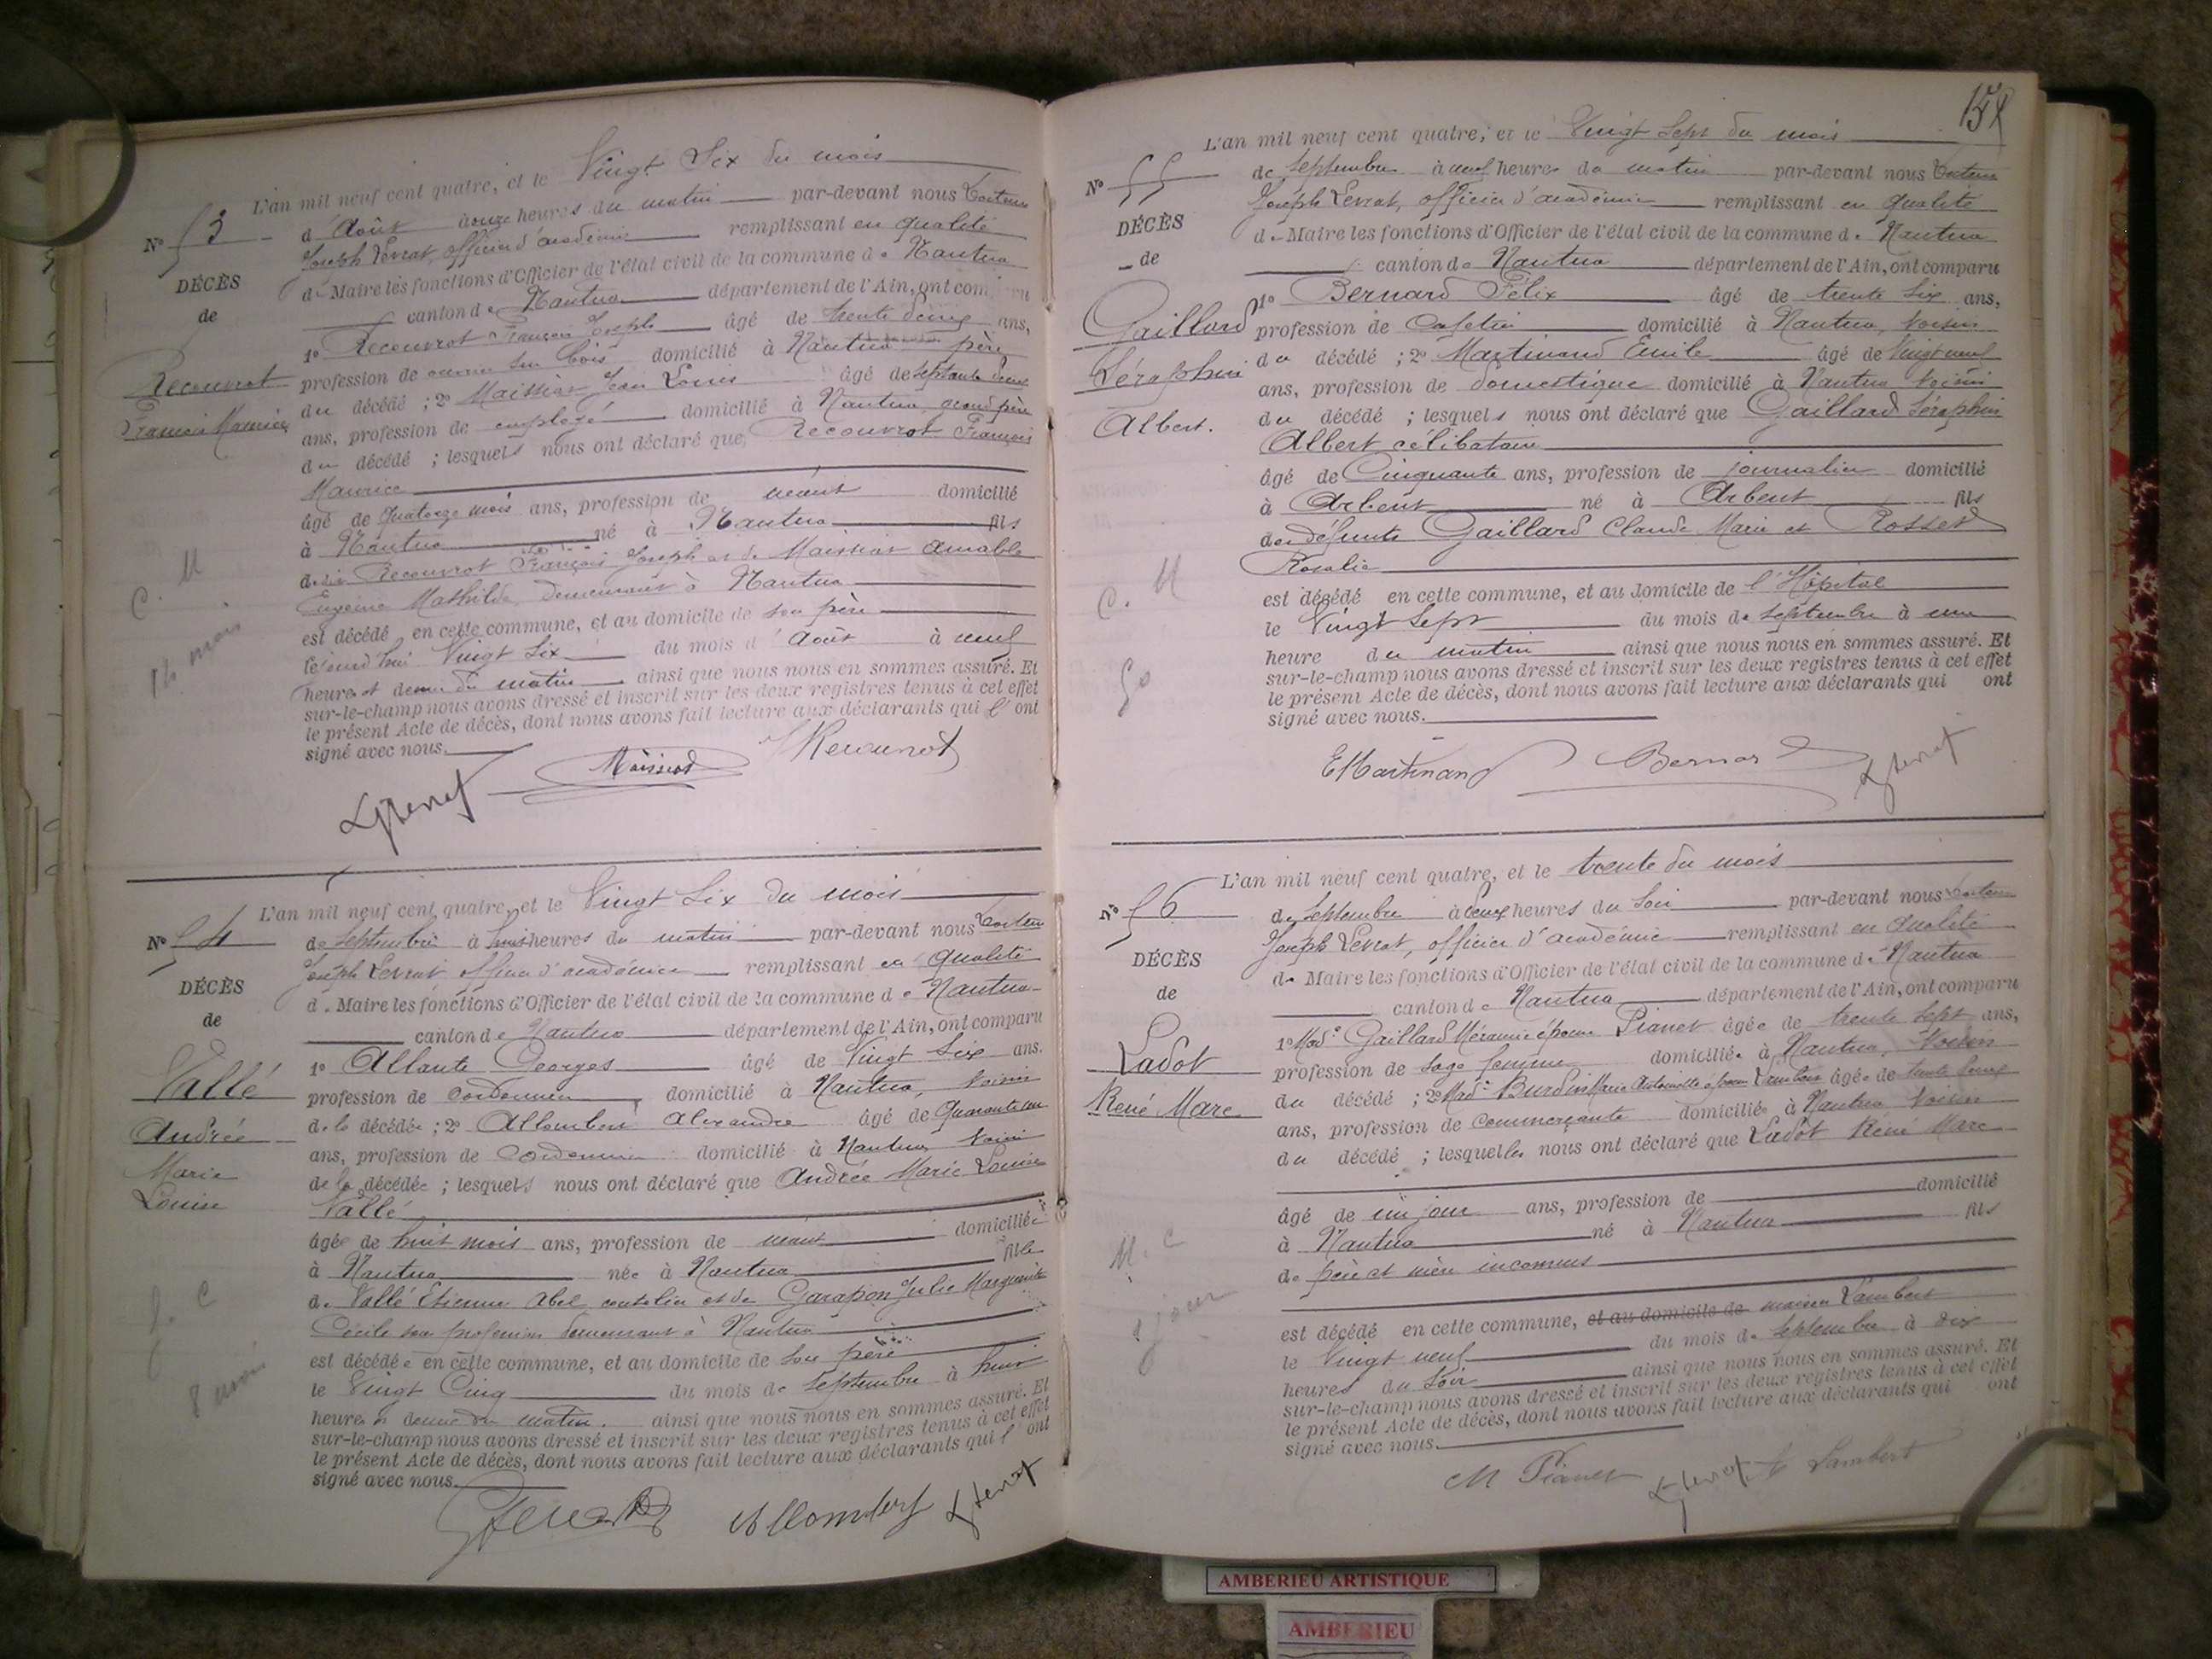 L'an mil neuf cent quatre, et le Vingt Six du mois
N° 53
d'Août à onze heures du matin par-devant nous
Joseph Levrat, officier d'académie remplissant en qualité
DÉCÈS
de Maire les fonctions d'Officier de l'état civil de la commune de Nantua
de
canton de Nantua département de l'Ain, ont comparu
1° Recouvrot François Joseph âgé de trente deux ans,
Recouvrot
François Maurice
profession de ouvrier sur bois domicilié à Nantua père
du décédé ; 2° Maissiat Jean Louis âgé de septante deux
ans, profession de employé domicilié à Nantua, grand père
du décédé ; lesquels nous ont déclaré que Recouvrot François
Maurice
âgé de quatorze mois ans, profession de néant domicilié
à Nantua né à Nantua fils
de Recouvrot François Joseph et de Maissiat Amable
C. M
Eugénie Mathilde, demeurant à Nantua
14 mois
est décédé en cette commune, et au domicile de son père
Vingt Six du mois d'Août à neuf
heures et demie du matin ainsi que nous nous en sommes assuré. Et
sur-le-champ nous avons dressé et inscrit sur les deux registres tenus à cet effet
le présent Acte de décès, dont nous avons fait lecture aux déclarants qui l'ont
signé avec nous.
Maissiat Recouvrot
L'an mil neuf cent quatre, et le Vingt Six du mois
N° 54
de Septembre à huit heures du matin par-devant nous
Joseph Levrat officier d'académie remplissant en qualité
DÉCÈS
de Maire les fonctions d'Officier de l'état civil de la commune de Nantua
de
canton de Nantua département de l'Ain, ont comparu
1° Georges âgé de Vingt Six ans.
Vallé
Andrée
Marie
Louise
profession de Cordonnier, domicilié à Nantua, voisin
de la décédée ; 2° Allombert Alexandre âgé de Quarante un
ans, profession de Cordonnier domicilié à Nantua voisin
de la décédée ; lesquels nous ont déclaré que Andrée Marie Louise
Vallé
âgée de huit mois ans, profession de néant domiciliée
à Nantua née à Nantua fille
de Vallé Etienne Abel, coutelier et de Garapon Julie Marguerite
Cécile sans profession demeurant à Nantua
8 mois
est décédée en cette commune, et au domicile de son père
le Vingt Cinq du mois de Septembre à huit
heures et demie du matin. ainsi que nous nous en sommes assuré. Et
sur-le-champ nous avons dressé et inscrit sur les deux registres tenus à cet effet
le présent Acte de décès, dont nous avons fait lecture aux déclarants qui l'ont
signé avec nous.
Allombert
L'an mil neuf cent quatre, et le Vingt Sept du mois
N° 55
de Septembre à neuf heures du matin par-devant nous
Joseph Levrat, officier d'académie remplissant en qualité
DÉCÈS
de Maire les fonctions d'Officier de l'état civil de la commune de Nantua
de
canton de Nantua département de l'Ain, ont comparu
1° Bernard Félix âgé de trente Six ans,
Gaillard
Séraphin
Albert.
profession de Cafetier domicilié à Nantua, voisin
du décédé ; 2° Martinand Emile âgé de Vingt neuf
ans, profession de domestique domicilié à Nantua voisin
du décédé ; lesquels nous ont déclaré que Gaillard Séraphin
Albert célibataire
âgé de Cinquante ans, profession de journalier domicilié
à Arbent né à Arbent fils
des défunts Gaillard Claude Marie et Rosset
Rosalie
C. M
50
est décédé en cette commune, et au domicile de l'Hôpital
le Vingt Sept du mois de septembre à une
heure du matin ainsi que nous nous en sommes assuré. Et
sur-le-champ nous avons dressé et inscrit sur les deux registres tenus à cet effet
le présent Acte de décès, dont nous avons fait lecture aux déclarants qui ont
signé avec nous.
EMartinand Bernard
L'an mil neuf cent quatre, et le trente du mois
N° 56
de Septembre à deux heures du Soir par-devant nous
Joseph Levrat, officier d'académie remplissant en qualité
DÉCÈS
de Maire les fonctions d'Officier de l'état civil de la commune de Nantua
de
canton de Nantua département de l'Ain, ont comparu
1° Made Gaillard épouse Pianet âgée de trente Sept ans,
Ladot
René Marc
profession de Sage femme domiciliée à Nantua, voisin
du décédé ; 2° Made Burdin Marie Antoinette épouse Lambert âgée de
ans, profession de Commerçante domiciliée à Nantua voisin
du décédé ; lesquelles nous ont déclaré que Ladot René Marc
âgé de un jour ans, profession de domicilié
à Nantua né à Nantua fils
de père et mère inconnus
M. C
1 jour
est décédé en cette commune, et au domicile de maison Lambert
le Vingt neuf du mois de Septembre à dix
heures du Soir ainsi que nous nous en sommes assuré. Et
sur-le-champ nous avons dressé et inscrit sur les deux registres tenus à cet effet
le présent Acte de décès, dont nous avons fait lecture aux déclarants qui ont
signé avec nous.
M Pianet Lambert
AMBERIEU ARTISTIQUE
AMBERIEU